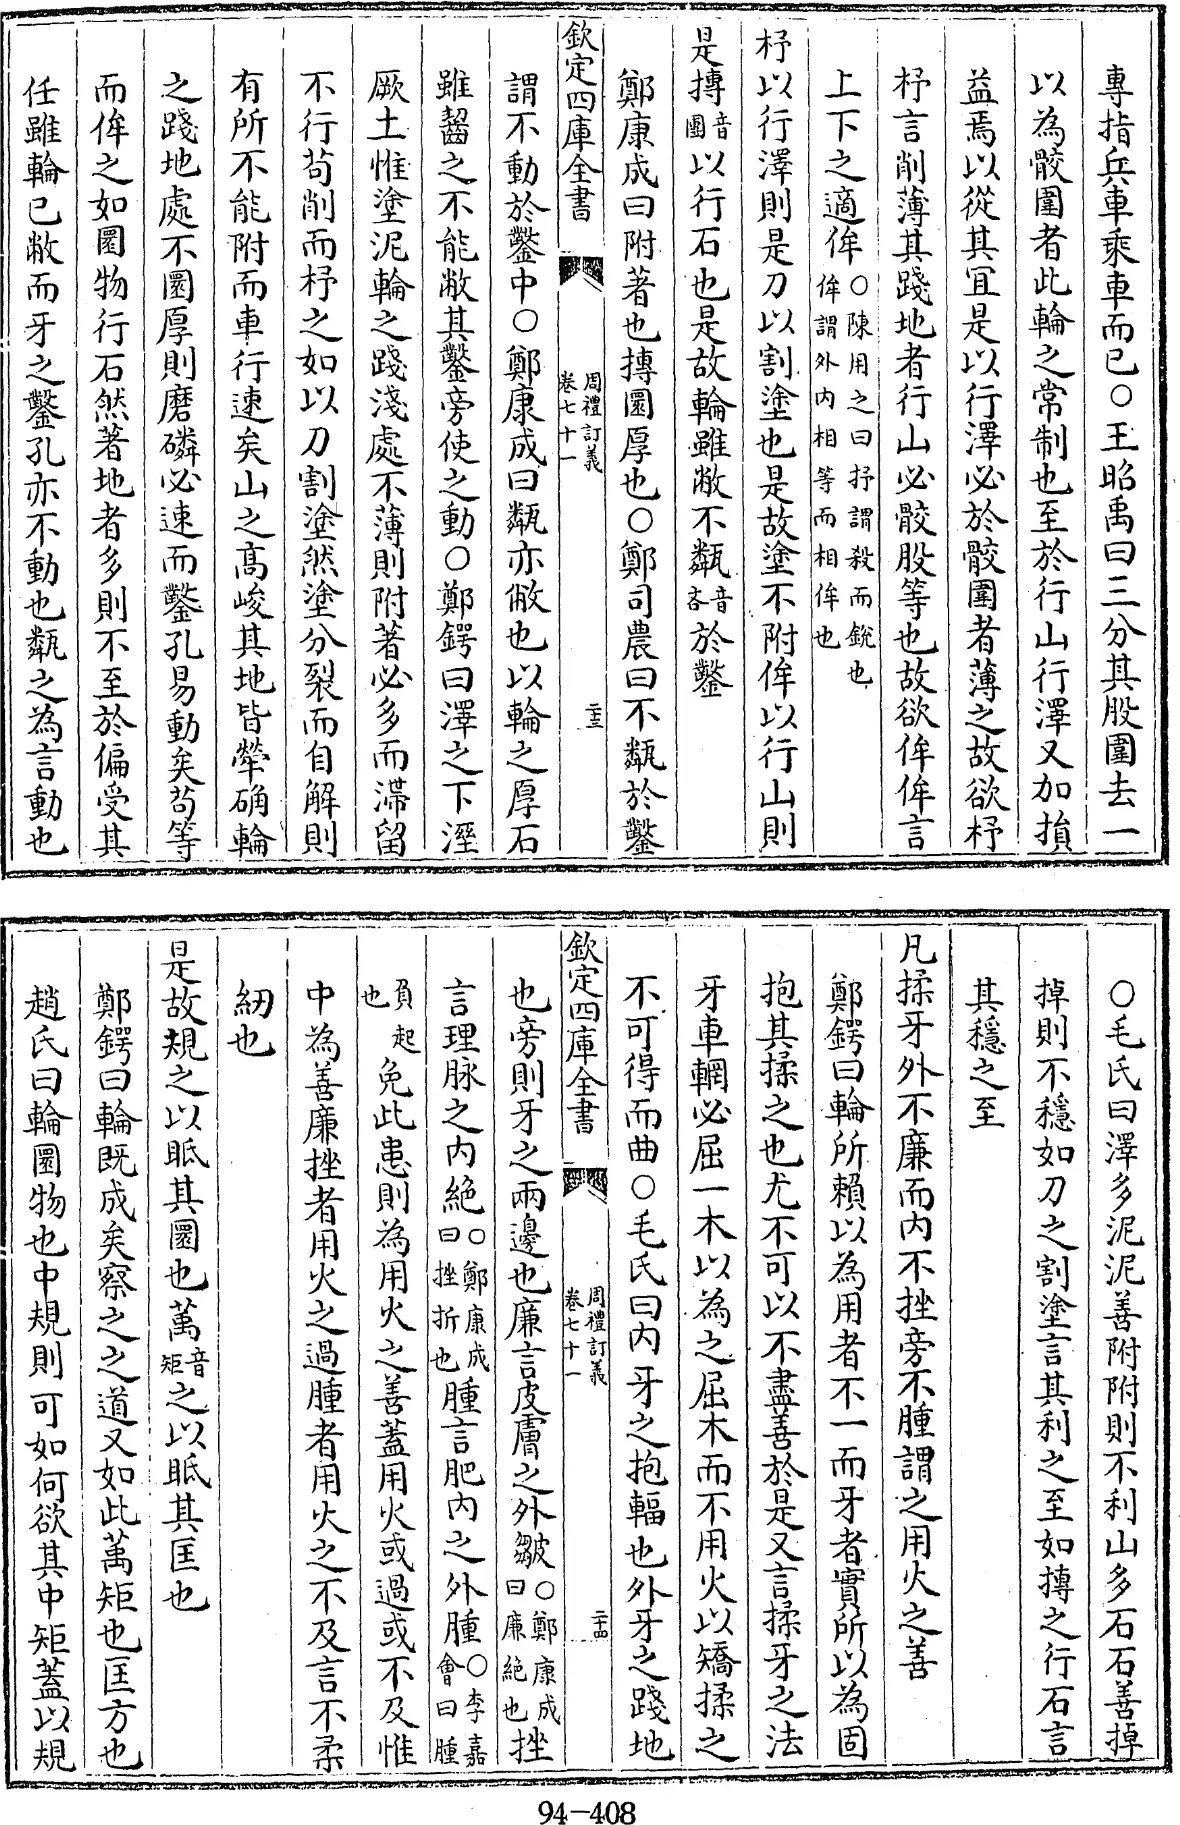 專指兵車乘車而已〇王昭禹曰三分其股圍去一
以為骹圍者此輪之常制也至於行山行澤又加損
益焉以從其宜是以行澤必於骹圍者薄之故欲杼
杼言削薄其踐地者行山必骹股等也故欲侔侔言
上下之適侔〇陳用之曰抒謂殺而銳也侔謂外内相等而相侔也
杼以行澤則是刀以割塗也是故塗不附侔以行山則
是摶音團以行石也是故輪雖敝不甐音吝於鑿
鄭康成曰附著也摶圜厚也〇鄭司農曰不甐於鑿
欽定四庫全書 周禮訂義卷七十一 二十三
謂不動於鑿中〇鄭康成曰甐亦敝也以輪之厚石
雖齧之不能敝其鑿旁使之動〇鄭鍔曰澤之下溼
厥土惟塗泥輪之踐淺處不薄則附著必多而滯留
不行茍削而杼之如以刀割塗然塗分裂而自解則
有所不能附而車行速矣山之髙峻其地皆犖确輪
之踐地處不圜厚則磨磷必速而鑿孔易動矣茍等
而侔之如圜物行石然著地者多則不至於偏受其
任雖輪已敝而牙之鑿孔亦不動也甐之為言動也
〇毛氏曰澤多泥泥善附附則不利山多石石善掉
掉則不穩如刀之割塗言其利之至如摶之行石言
其穩之至
凡揉牙外不廉而内不挫旁不腫謂之用火之善
鄭鍔曰輪所賴以為用者不一而牙者實所以為固
抱其揉之也尤不可以不盡善於是又言揉牙之法
牙車輞必屈一木以為之屈木而不用火以矯揉之
不可得而曲〇毛氏曰内牙之抱輻也外牙之踐地
欽定四庫全書 周禮訂義卷七十一 二十四
也旁則牙之兩邊也廉言皮膚之外皺〇鄭康成曰廉絶也挫
言理脉之内絶〇鄭康成曰挫折也腫言肥内之外腫〇李嘉會曰腫
負起也免此患則為用火之善蓋用火或過或不及惟
中為善廉挫者用火之過腫者用火之不及言不柔
紉也
是故規之以眡其圜也萬音矩之以眡其匡也
鄭鍔曰輪既成矣察之之道又如此萬矩也匡方也
趙氏曰輪圜物也中規則可如何欲其中矩蓋以規
94-408